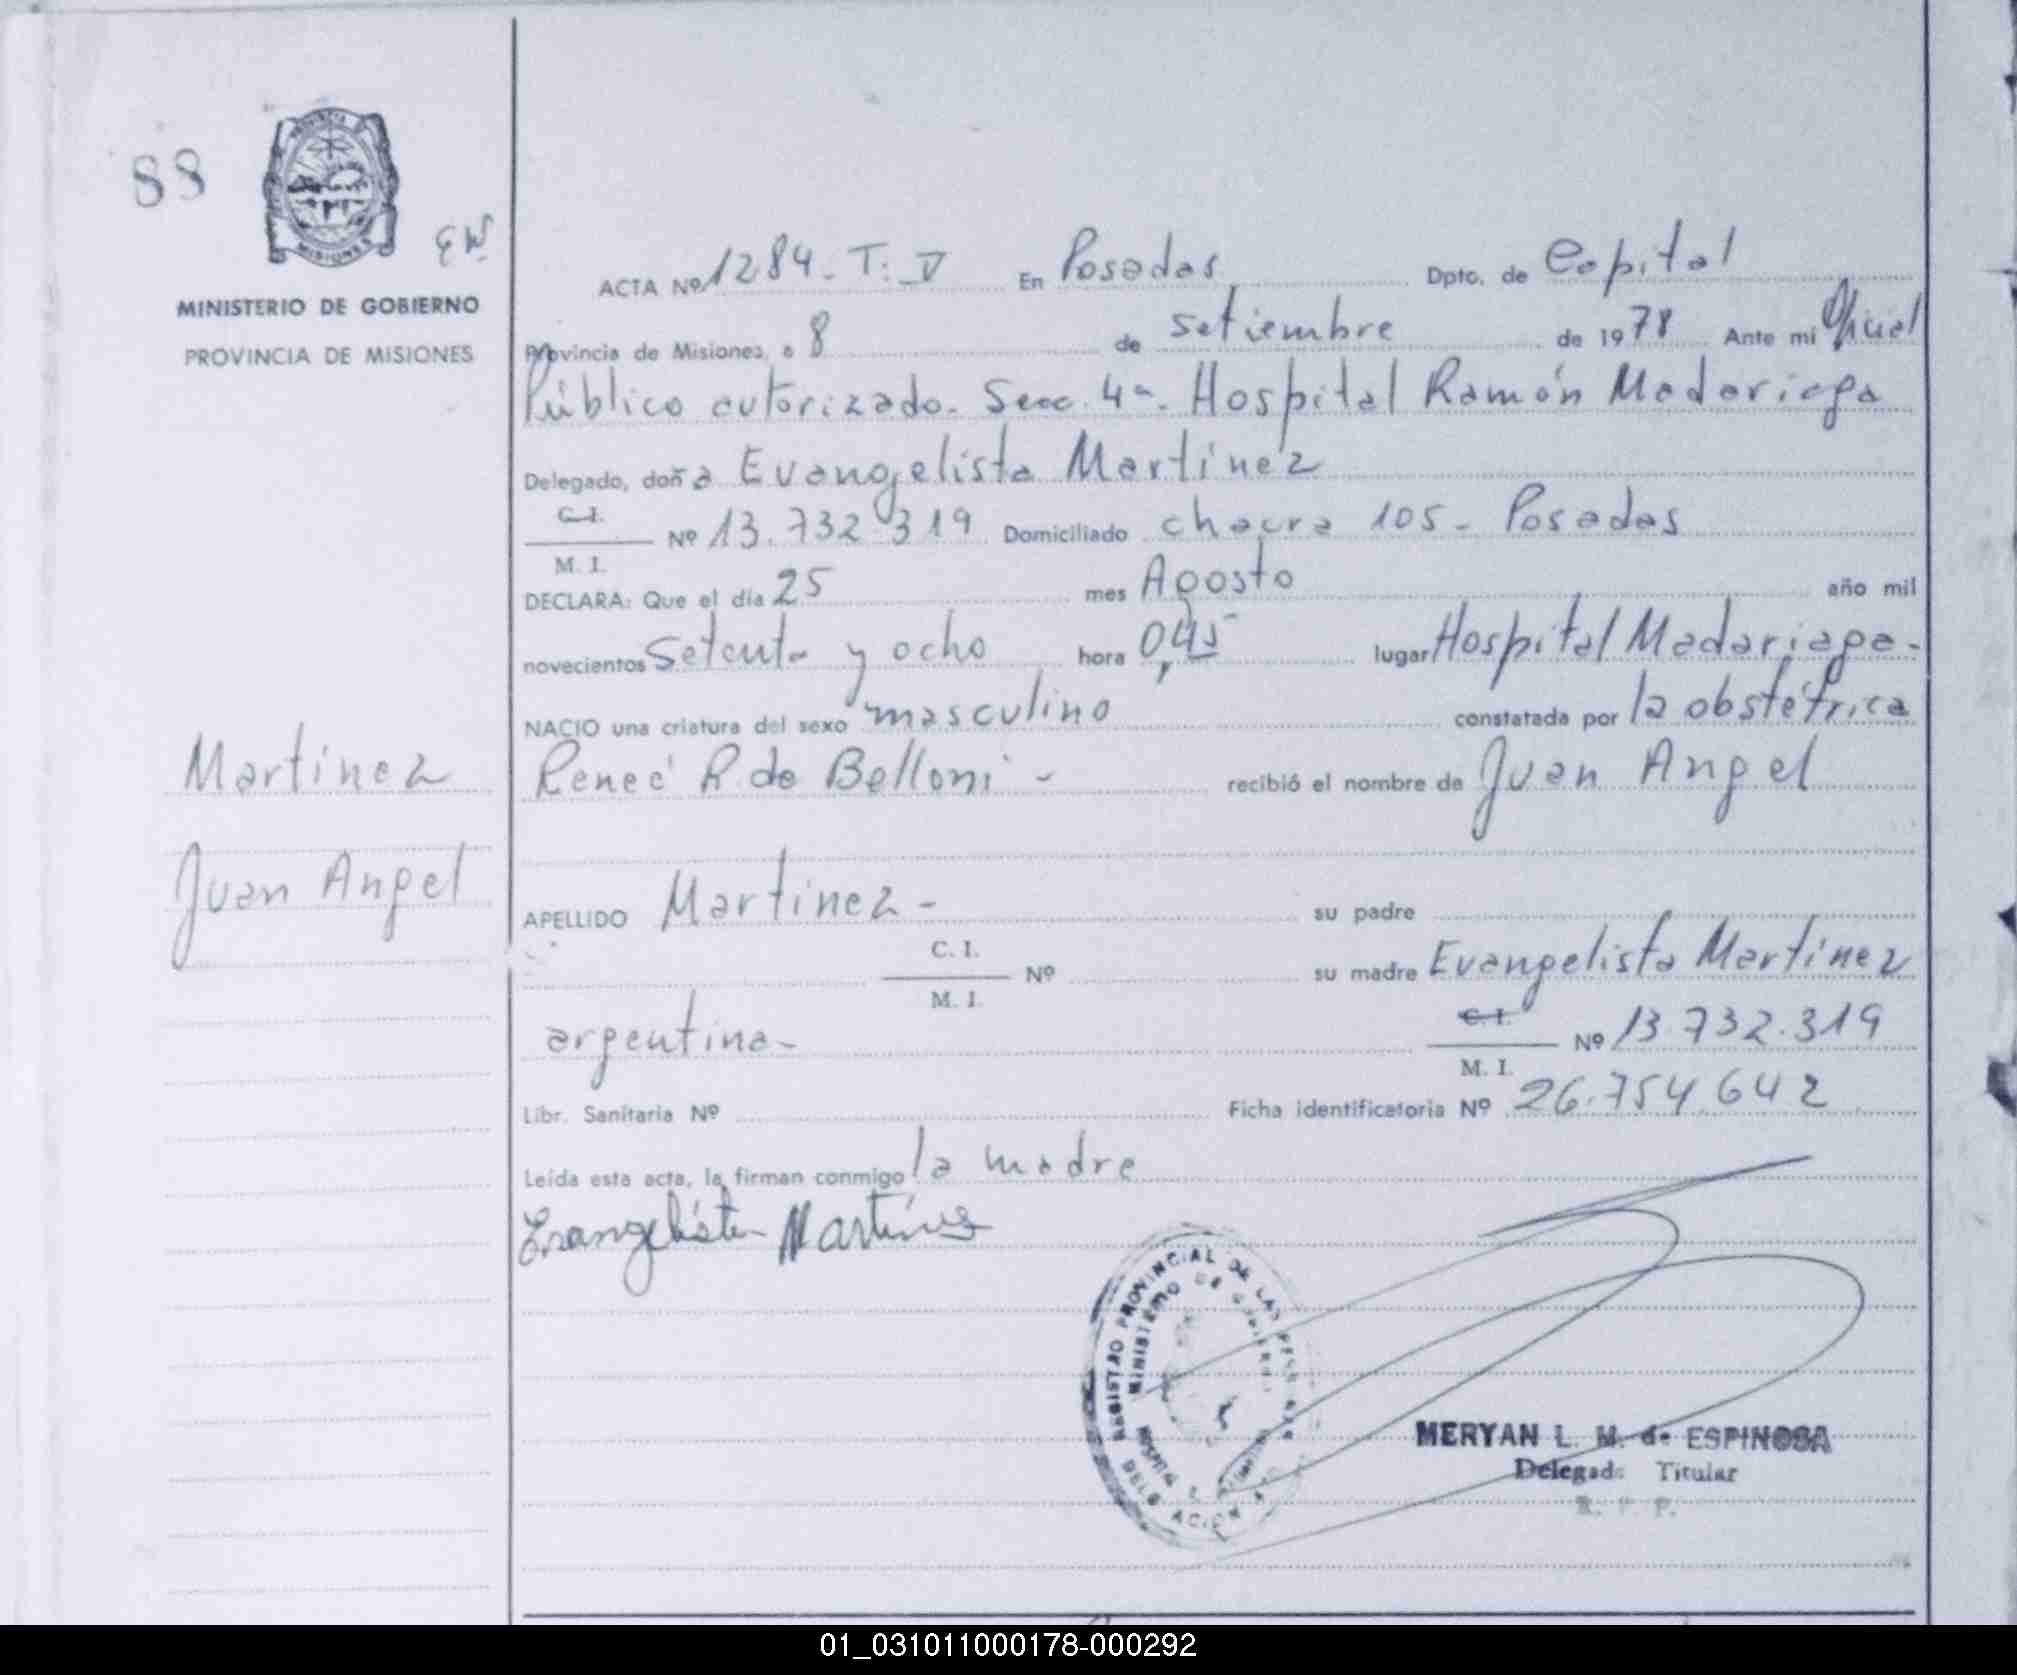 88
EW
MINISTERIO DE GOBIERNO
PROVINCIA DE MISIONES
Martinez
Juan Angel
ACTA Nº 1284. T. V En Posadas Dpto. de Capital
Provincia de Misiones, a 8 de setiembre de 1978 Ante mi Oficial
Público autorizado. Secc. 4ª. Hospital Ramón Madariaga
Delegado, doña Evangelista Martinez
C. I.
Nº 13.732.319 Domiciliado chacra 105 - Posadas
M. I.
DECLARA: Que el día 25 mes Agosto año mil
novecientos setenta y ocho hora 0,45 lugar Hospital Madariaga -
NACIO una criatura del sexo masculino constatada por la obstétrica
Reneé R. de Belloni - recibió el nombre de Juan Angel
APELLIDO Martinez - su padre
C. I.
Nº su madre Evangelista Martinez
M. I.
argentina - C. I. Nº 13.732.319
M. I.
Libr. Sanitaria Nº Ficha identificatoria Nº 26.754.642
Leída esta acta, la firman conmigo la madre
Evangelista Martinez
REGISTRO PROVINCIAL DE LAS PERSONAS
MINISTERIO DE GOBIERNO
HOSPITAL
DELEGACION
MERYAN L. M. de ESPINOSA
Delegada Titular
R. P. P.
01_031011000178-000292